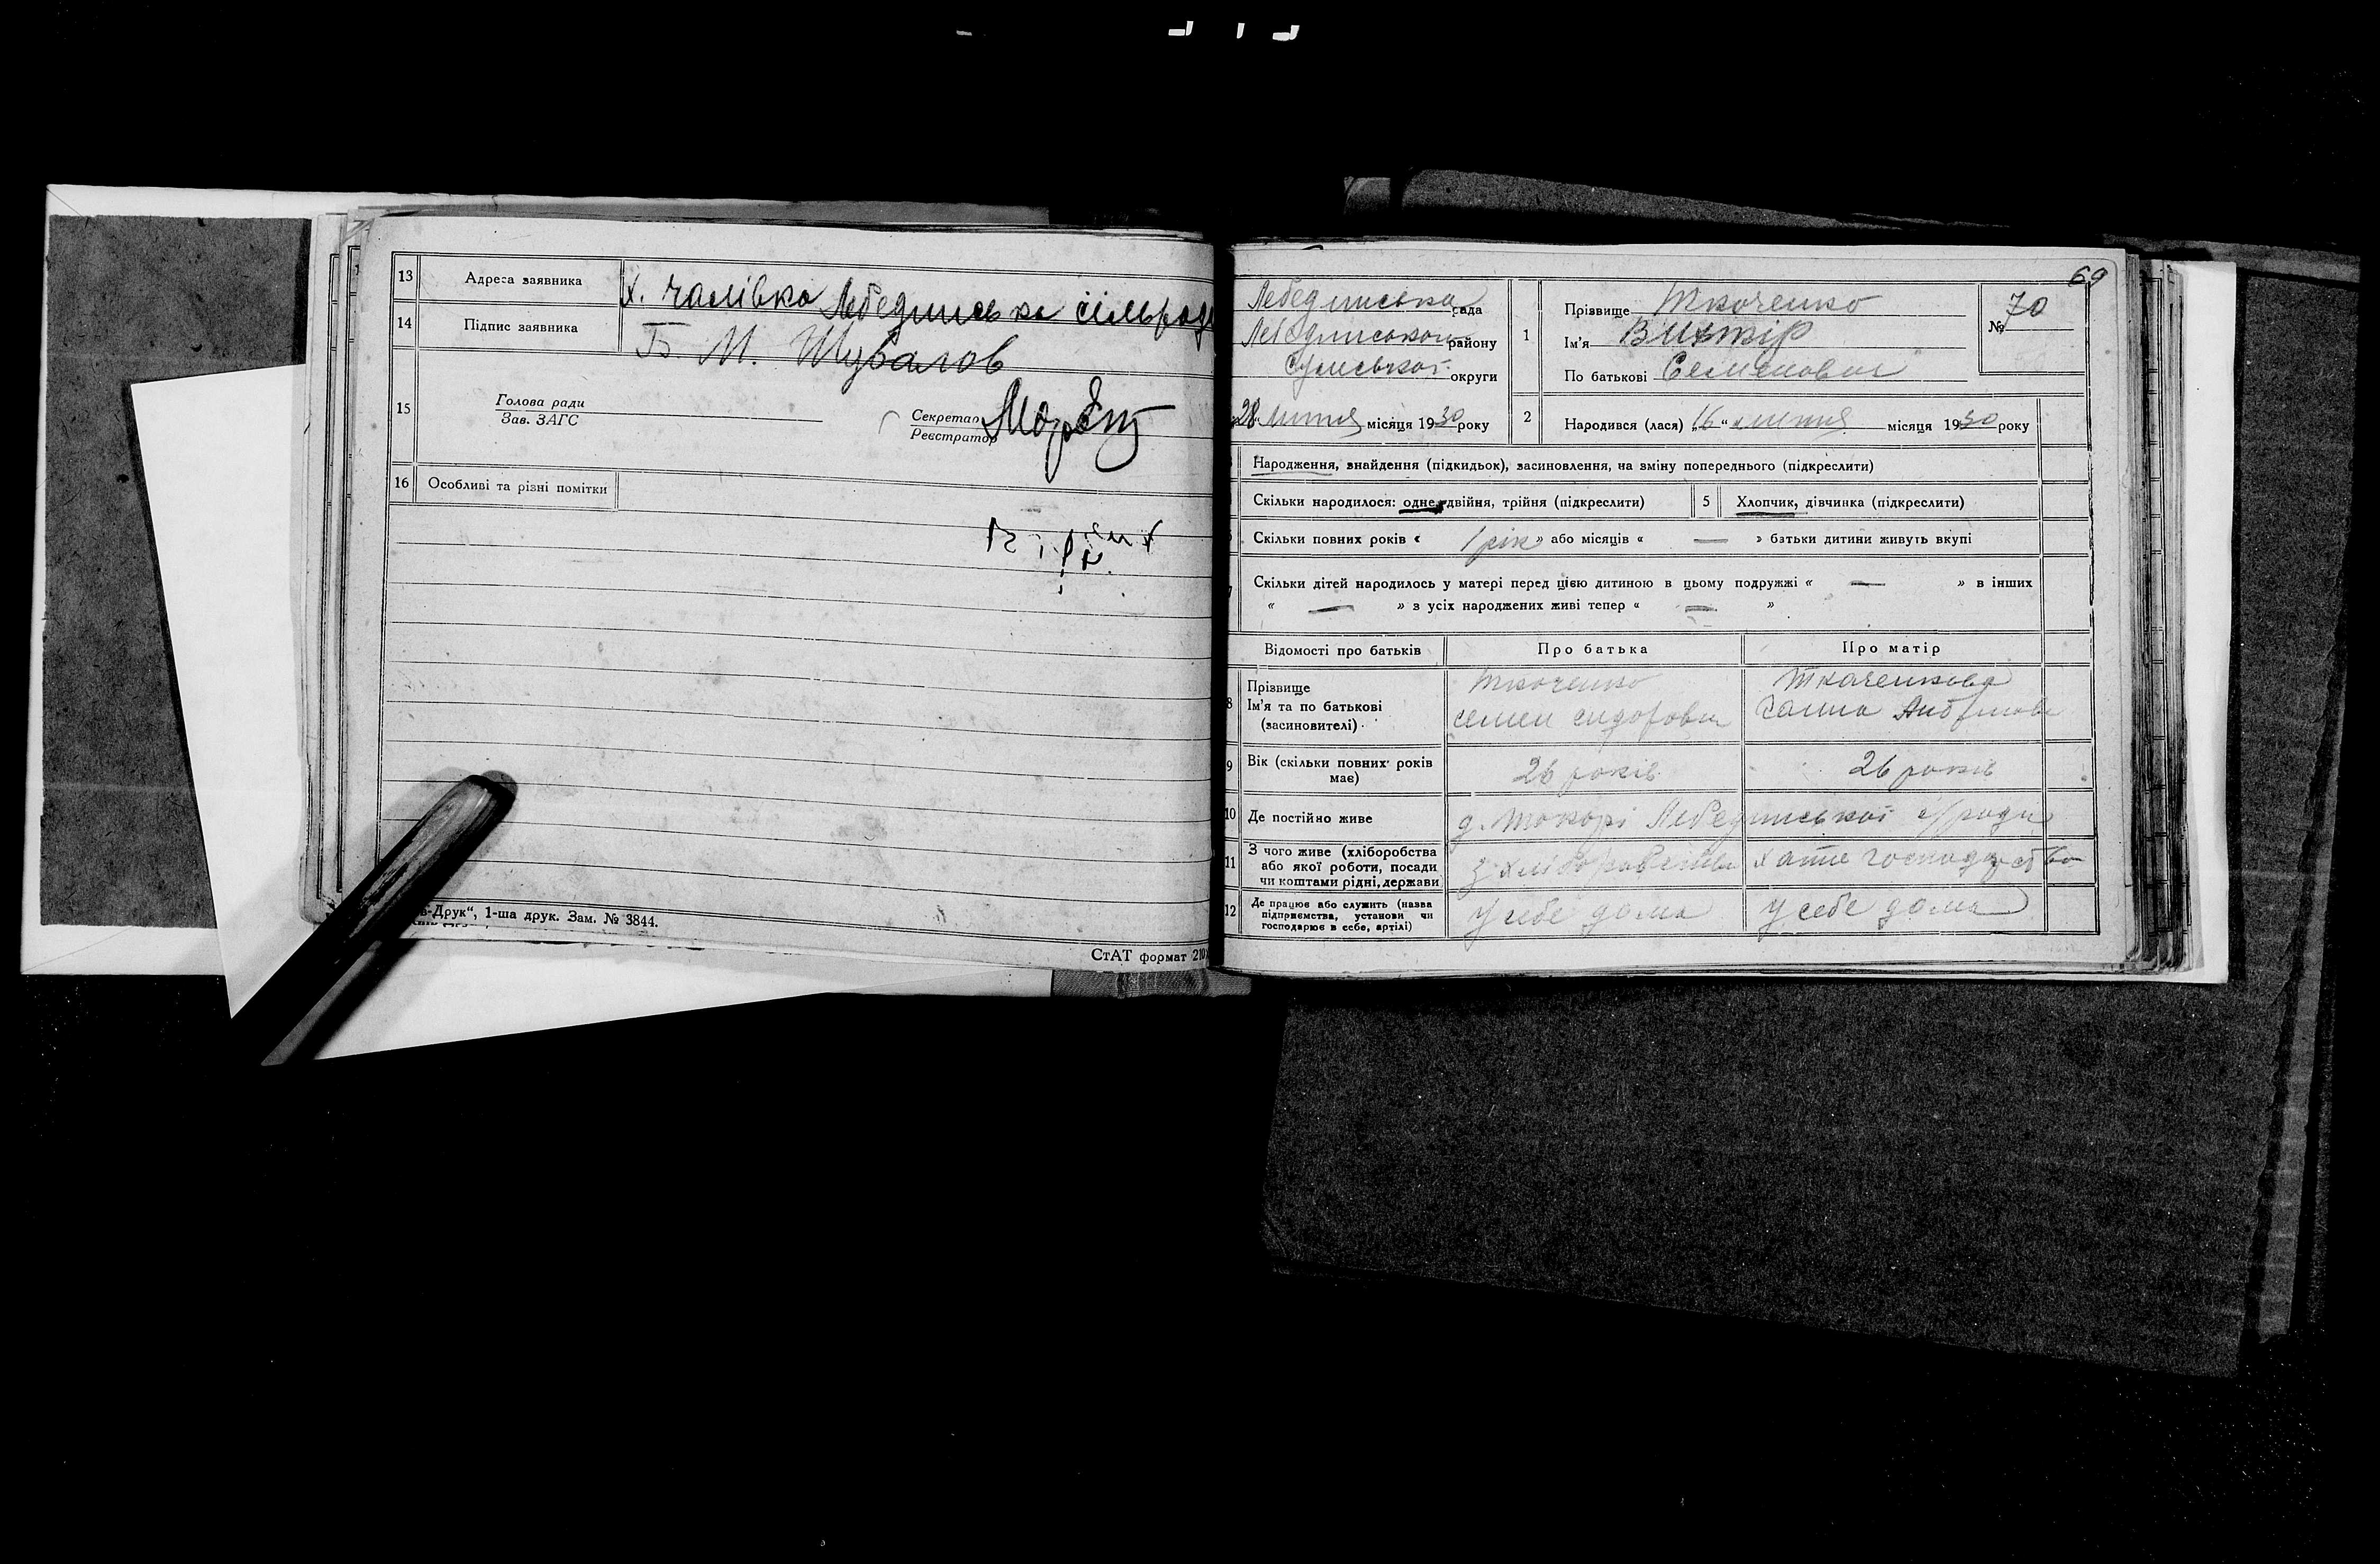 13 Адреса заявника х. Чалівка Лебединська сільрад
14 Підпис заявника Б М. Шувалов
15 Голова ради
Зав. ЗАГС
Секретар
Реєстратор
16 Особливі та різні помітки
в-Друк“, 1-ша друк. Зам. № 3844.
СтАТ формат 210
69
Лебединська рада
Лебединського району
Сумської округи
28 липня місяця 1930 року
1 Прізвище Ткаченко
Ім'я Віктір
По батькові Семенович
№ 70
2 Народився (лася) „16“ липня місяця 1930 року
Народження, знайдення (підкидьок), засиновлення, на зміну попереднього (підкреслити)
Скільки народилося: одне, двійня, трійня (підкреслити) 5 Хлопчик, дівчинка (підкреслити)
Скільки повних років « 1 рік » або місяців « — » батьки дитини живуть вкупі
Скільки дітей народилось у матері перед цією дитиною в цьому подружжі « — » в інших
« — » з усіх народжених живі тепер « — »
Відомості про батьків Про батька Про матір
8 Прізвище
Ім'я та по батькові
(засиновителі)
Ткаченко
Семен Сидорович
Ткаченкова
Ганна
9 Вік (скільки повних років
має)
26 років 26 років
10 Де постійно живе д. Токарі Лебединської с/ради
11 З чого живе (хліборобства
або якої роботи, посади
чи коштами рідні, держави)
з хліборобства хатне господарство
12 Де працює або служить (назва
підприємства, установи чи
господарює в себе, артілі)
У себе дома У себе дома